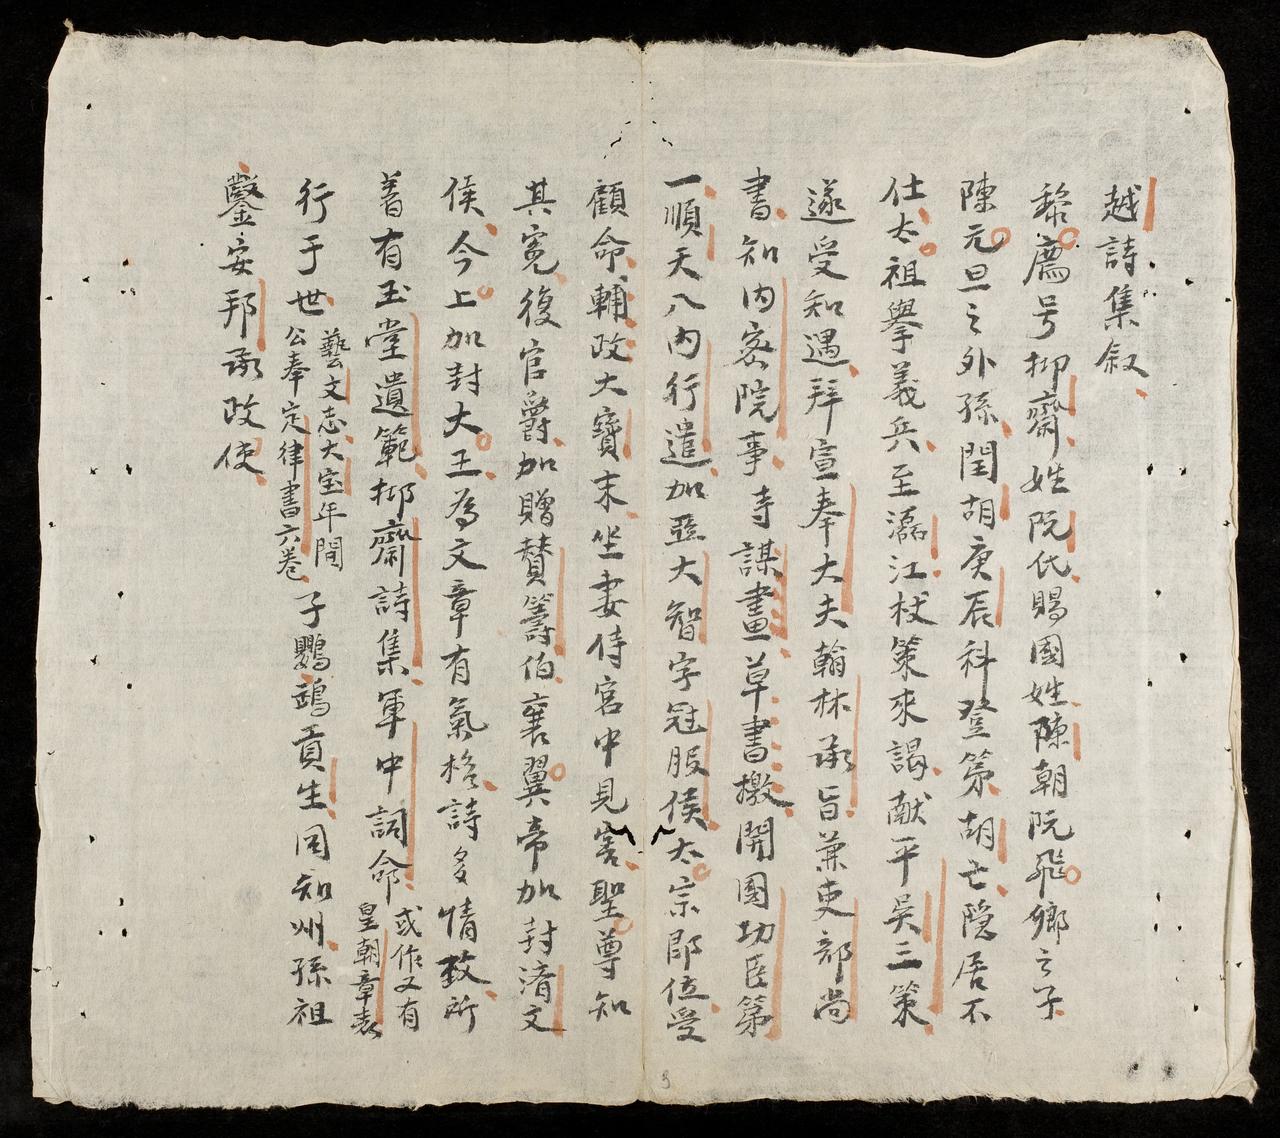 越詩集叙
黎廌号抑齋姓阮氏賜國姓陳朝阮飛鄉之子
陳元旦之外孫閏胡庚辰科登第胡亡隐居不
仕太祖舉義兵至灆江杖策來謁献平吴三策
遂受知遇拜宣奉大夫翰林承旨兼吏部尚
書知内密院事寺謀畫草書檄開國功臣第
一順天八内行遣加亞大智字冠服侯太宗即位受
顧命輔政大寶末坐妻侍宮中見害聖尊知
其寃復官爵加贈賛籌伯襄翼帝加封濟文
侯今上加封大王為文章有氣格詩多情致所
著有玉堂遺範抑齋詩集軍中詞命或作又有皇朝章表
行于世藝文志大宝年間公奉定律書六卷子鸚鵡貢生同知州孫祖
鑿安邦承政使